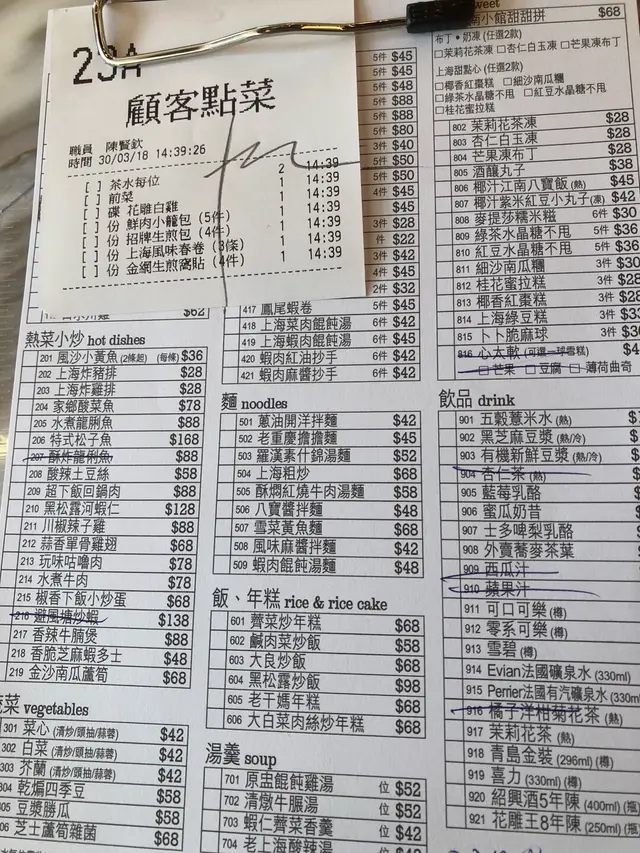 23A
顧客點菜
職員 陳賢欽
時間 30/03/18 14:39:26
[ ] 茶水每位 2 14:39
[ ] 前菜 1 14:39
[ ] 碟 花雕白雞 1 14:39
[ ] 份 鮮肉小籠包 (5件) 1 14:39
[ ] 份 招牌生煎包 (4件) 1 14:39
[ ] 份 上海風味春卷 (3條) 1 14:39
[ ] 份 金網生煎窩貼 (4件) 1 14:39
$62
熱菜小炒 hot dishes
201 風沙小黃魚 (2條起) (每條) $36
202 上海炸豬排 $28
203 上海炸雞排 $28
204 家鄉酸菜魚 $78
205 水煮龍脷魚 $88
206 特式松子魚 $168
207 酥炸龍脷魚 $88
208 酸辣土豆絲 $58
209 超下飯回鍋肉 $88
210 黑松露河蝦仁 $128
211 川椒辣子雞 $88
212 蒜香單骨雞翅 $68
213 玩味咕嚕肉 $78
214 水煮牛肉 $78
215 椒香下飯小炒蛋 $68
216 避風塘炒蝦 $138
217 香辣牛腩煲 $88
218 香脆芝麻蝦多士 $48
219 金沙南瓜蘆筍 $68
菜 vegetables
301 菜心 (清炒/頭抽/蒜蓉) $42
302 白菜 (清炒/頭抽/蒜蓉) $42
303 芥蘭 (清炒/頭抽/蒜蓉) $42
304 乾煸四季豆 $58
305 豆漿勝瓜 $58
306 芝士蘆筍雜菌 $68
5件 $45
5件 $45
5件 $48
5件 $88
5件 $88
5件 $40
5件 $50
$50
$45
$45
3件 $28
件 $22
3件 $42
4件 $45
2件 $32
417 鳳尾蝦卷 5件 $45
418 上海菜肉餛飩湯 6件 $42
419 上海蝦肉餛飩湯 6件 $45
420 蝦肉紅油抄手 6件 $42
421 蝦肉麻醬抄手 6件 $42
麵 noodles
501 蔥油開洋拌麵 $42
502 老重慶擔擔麵 $45
503 羅漢素什錦湯麵 $52
504 上海粗炒 $68
505 酥燜紅燒牛肉湯麵 $58
506 八寶醬拌麵 $48
507 雪菜黃魚麵 $68
508 風味麻醬拌麵 $42
509 蝦肉餛飩湯麵 $48
飯、年糕 rice & rice cake
601 薺菜炒年糕 $68
602 鹹肉菜炒飯 $58
603 大良炒飯 $68
604 黑松露炒飯 $98
605 老干媽年糕 $68
606 大白菜肉絲炒年糕 $68
湯羹 soup
701 原盅餛飩雞湯 位 $52
702 清燉牛𦟌湯 位 $52
703 蝦仁薺菜香羹 位 $42
704 老上海酸辣湯 位 $42
sweet
南小館甜甜拼 $68
布丁・奶凍 (任選2款)
□茉莉花茶凍 □杏仁白玉凍 □芒果凍布丁
上海甜點心 (任選2款)
□椰香紅棗糕 □細沙南瓜糰
□綠茶水晶糖不甩 □紅豆水晶糖不甩
□桂花蜜拉糕
802 茉莉花茶凍 $28
803 杏仁白玉凍 $28
804 芒果凍布丁 $28
805 酒釀丸子 $38
806 椰汁江南八寶飯 (熱) $45
807 椰汁紫米紅豆小丸子 (凍) $42
808 麥提莎糯米糍 6件 $30
809 綠茶水晶糖不甩 5件 $36
810 紅豆水晶糖不甩 5件 $36
811 細沙南瓜糰 3件 $30
812 桂花蜜拉糕 3件 $28
813 椰香紅棗糕 3件 $28
814 上海綠豆糕 3件
815 卜卜脆麻球 3件
816 心太軟 (可選一球雪糕)
□芒果 □豆腐 □薄荷曲奇
飲品 drink
901 五穀薏米水 (熱)
902 黑芝麻豆漿 (熱/冷)
903 有機新鮮豆漿 (熱/冷)
904 杏仁茶 (熱)
905 藍莓乳酪
906 蜜瓜奶昔
907 士多啤梨乳酪
908 外賣蕎麥茶葉
909 西瓜汁
910 蘋果汁
911 可口可樂 (樽)
912 零系可樂 (樽)
913 雪碧 (樽)
914 Evian法國礦泉水 (330ml)
915 Perrier法國有汽礦泉水 (330m
916 橘子洋柑菊花茶 (熱)
917 茉莉花茶 (熱)
918 青島金裝 (296ml) (樽)
919 喜力 (330ml) (樽)
920 紹興酒5年陳 (400ml) (瓶
921 花雕王8年陳 (250ml) (瓶